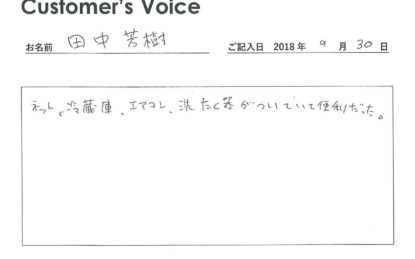 Customer's Voice
お名前 田中芳樹 ご記入日 2018年 9月30日
ネット、冷蔵庫、エアコン、洗たく器がついていて便利だった。